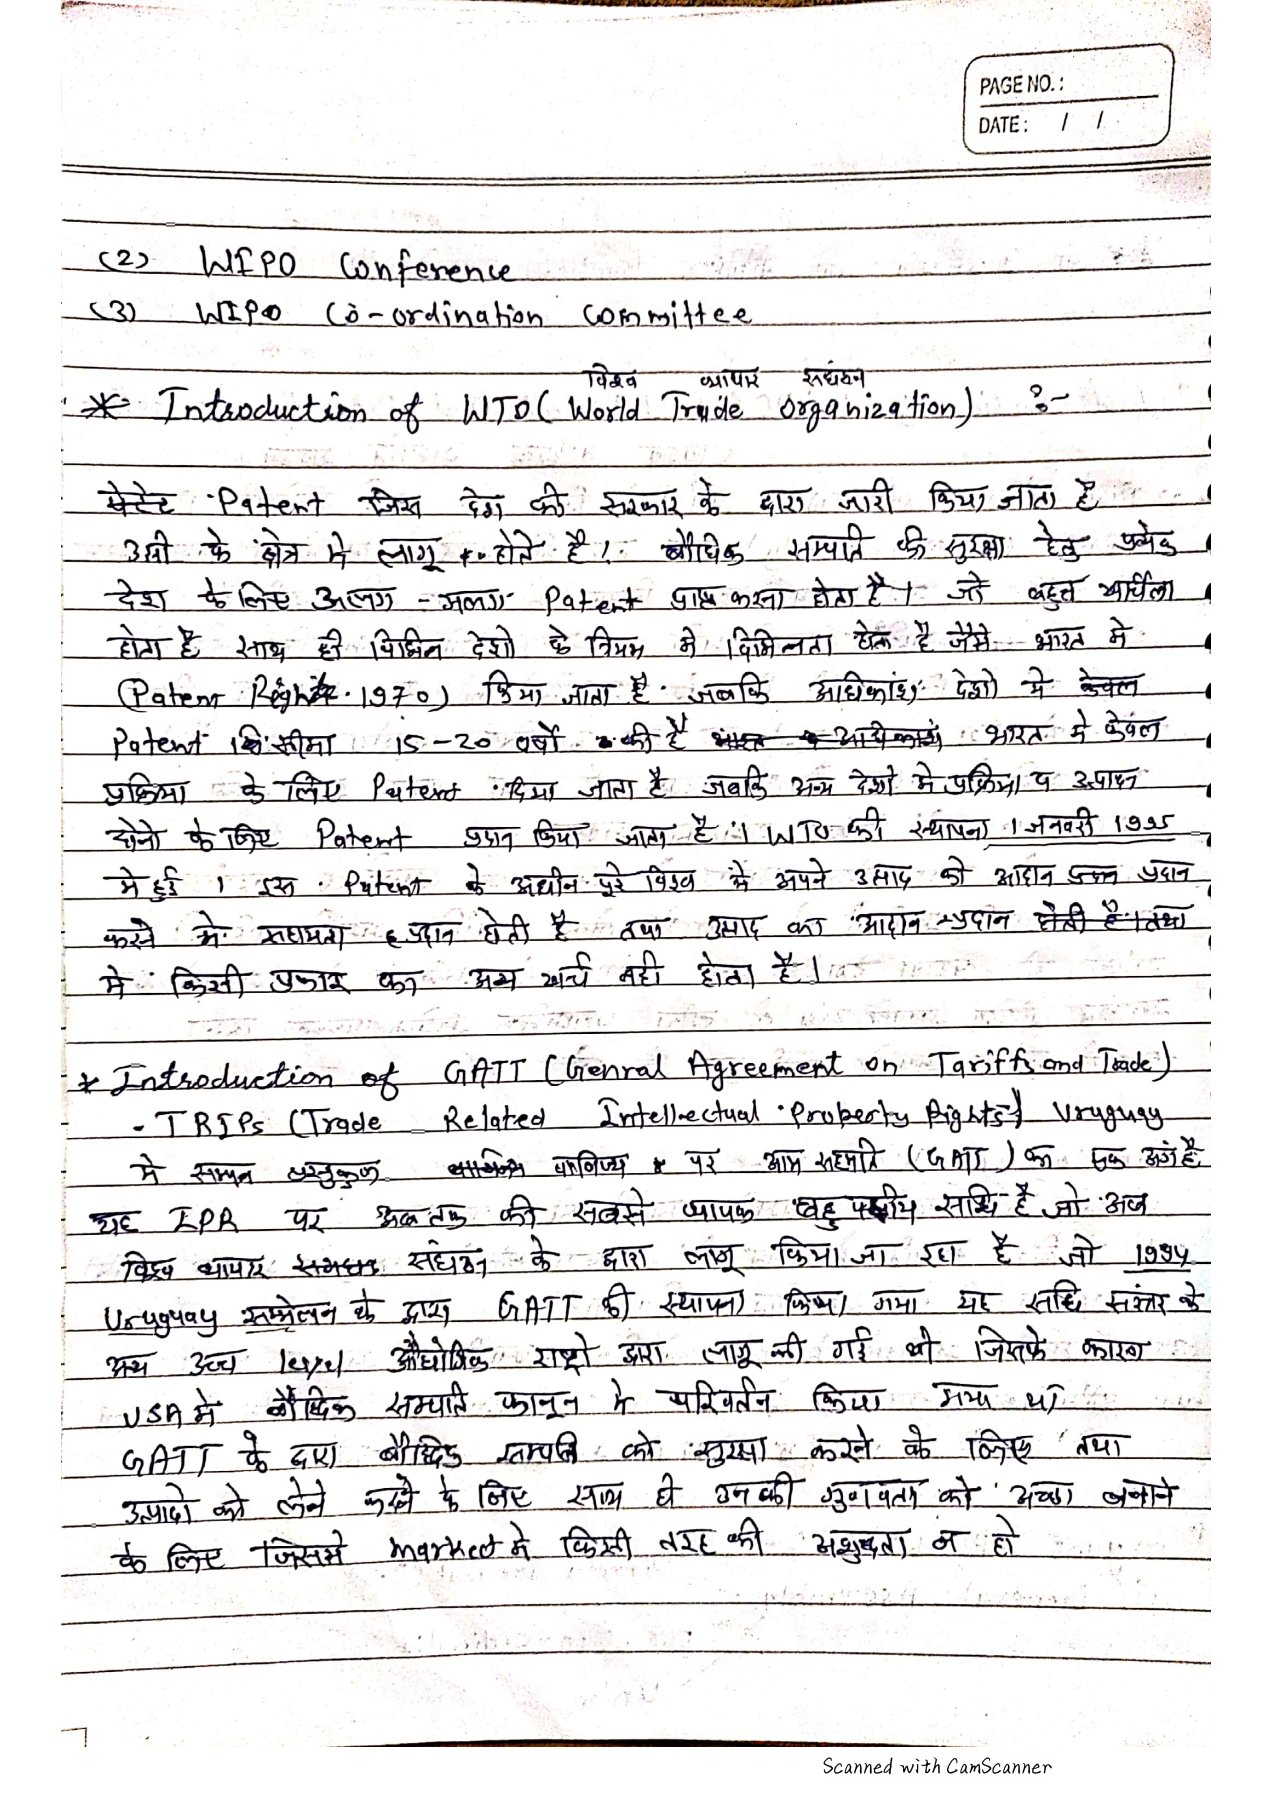 PAGE NO.:
DATE: / /
(2) WIPO Conference
(3) WIPO Co-ordination Committee
विश्व व्यापार संघठन
* Introduction of WTO (World Trade Organization) :-
Patent जिस देश की सरकार के द्वारा जारी किया जाता है
उसी के क्षेत्र मे लागू होते है। बौधिक सम्पति की सुरक्षा हेतु प्रत्येक
देश के लिए अलग - अलग Patent प्राप्त करना होता है। जो बहुत खर्चीला
होता है साथ ही विभिन्न देशो के नियम मे विभिन्नता होता है जैसे भारत मे
(Patent Right 1970) किया जाता है जबकि अधिकांश देशो मे केवल
Patent कि सीमा 15-20 वर्षो की है भारत मे केवल
प्रक्रिया के लिए Patent दिया जाता है जबकि अन्य देशो मे प्रक्रिया व उत्पाद
दोनो के लिए Patent प्रदान किया जाता है। WTO की स्थापना 1 जनवरी 1995
मे हुई। इस Patent के अधीन पूरे विश्व मे अपने उत्पाद को आदान प्रदान
करने मे सहायता प्रदान होती है तथा उत्पाद का आदान-प्रदान होती है। तथा
मे किसी प्रकार का अन्य खर्च नही होता है।
* Introduction of GATT (Genral Agreement on Tariffs and Trade)
- TRIPs (Trade Related Intellectual Property Rights) Uruguay
मे सम्पन्न वाणिज्य पर आम सहमति (GATT) का एक अंग है
यह IPR पर अब तक की सबसे व्यापक बहुपक्षीय संधि है जो अब
विश्व व्यापार संघठन के द्वारा लागू किया जा रहा है जो 1994
Uruguay सम्मेलन के द्वारा GATT की स्थापना किया गया यह संधि संसार के
अन्य उच्च level औधोगिक राष्ट्रो द्वारा लागू की गई थी जिसके कारण
USA मे बौद्धिक सम्पति कानून मे परिवर्तन किया गया था
GATT के द्वारा बौद्धिक सम्पति को सुरक्षा करने के लिए तथा
उत्पादो को लेने करने के लिए साथ ही उनकी गुणवत्ता को अच्छा बनाने
के लिए जिसमे market मे किसी तरह की अशुद्धता न हो
Scanned with CamScanner